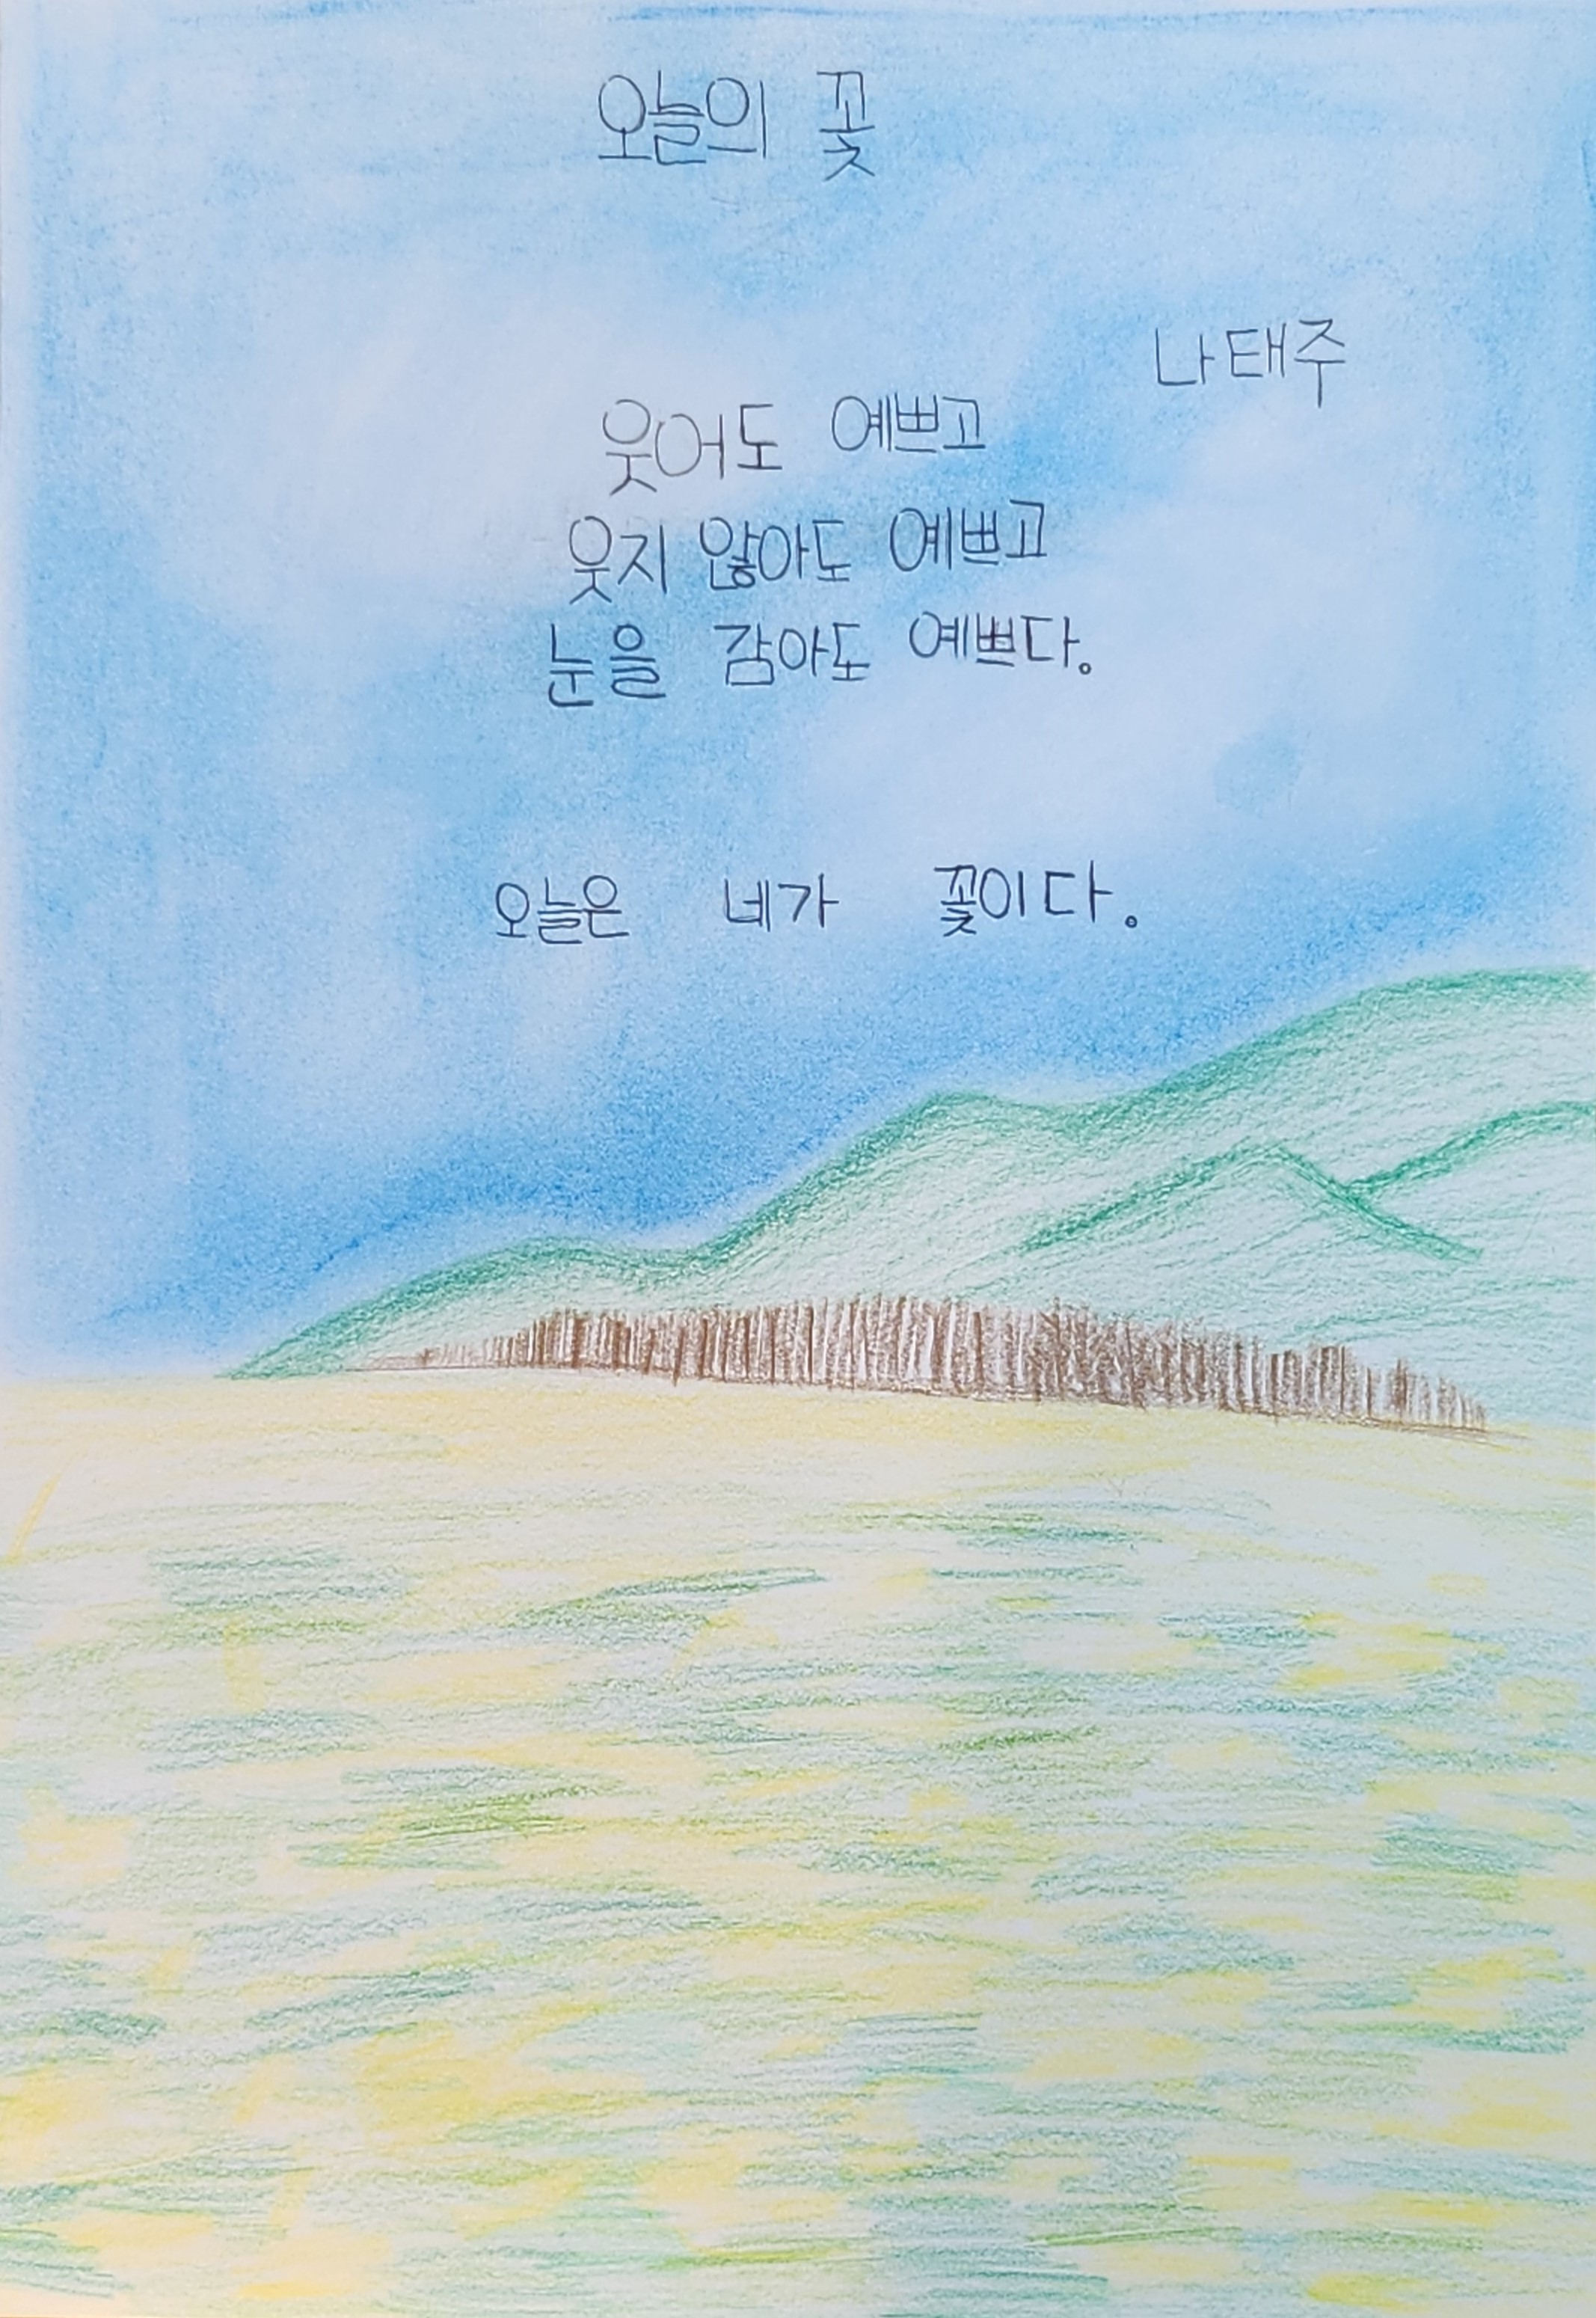 오늘의 꽃
나태주
웃어도 예쁘고
웃지 않아도 예쁘고
눈을 감아도 예쁘다.
오늘은 네가 꽃이다.